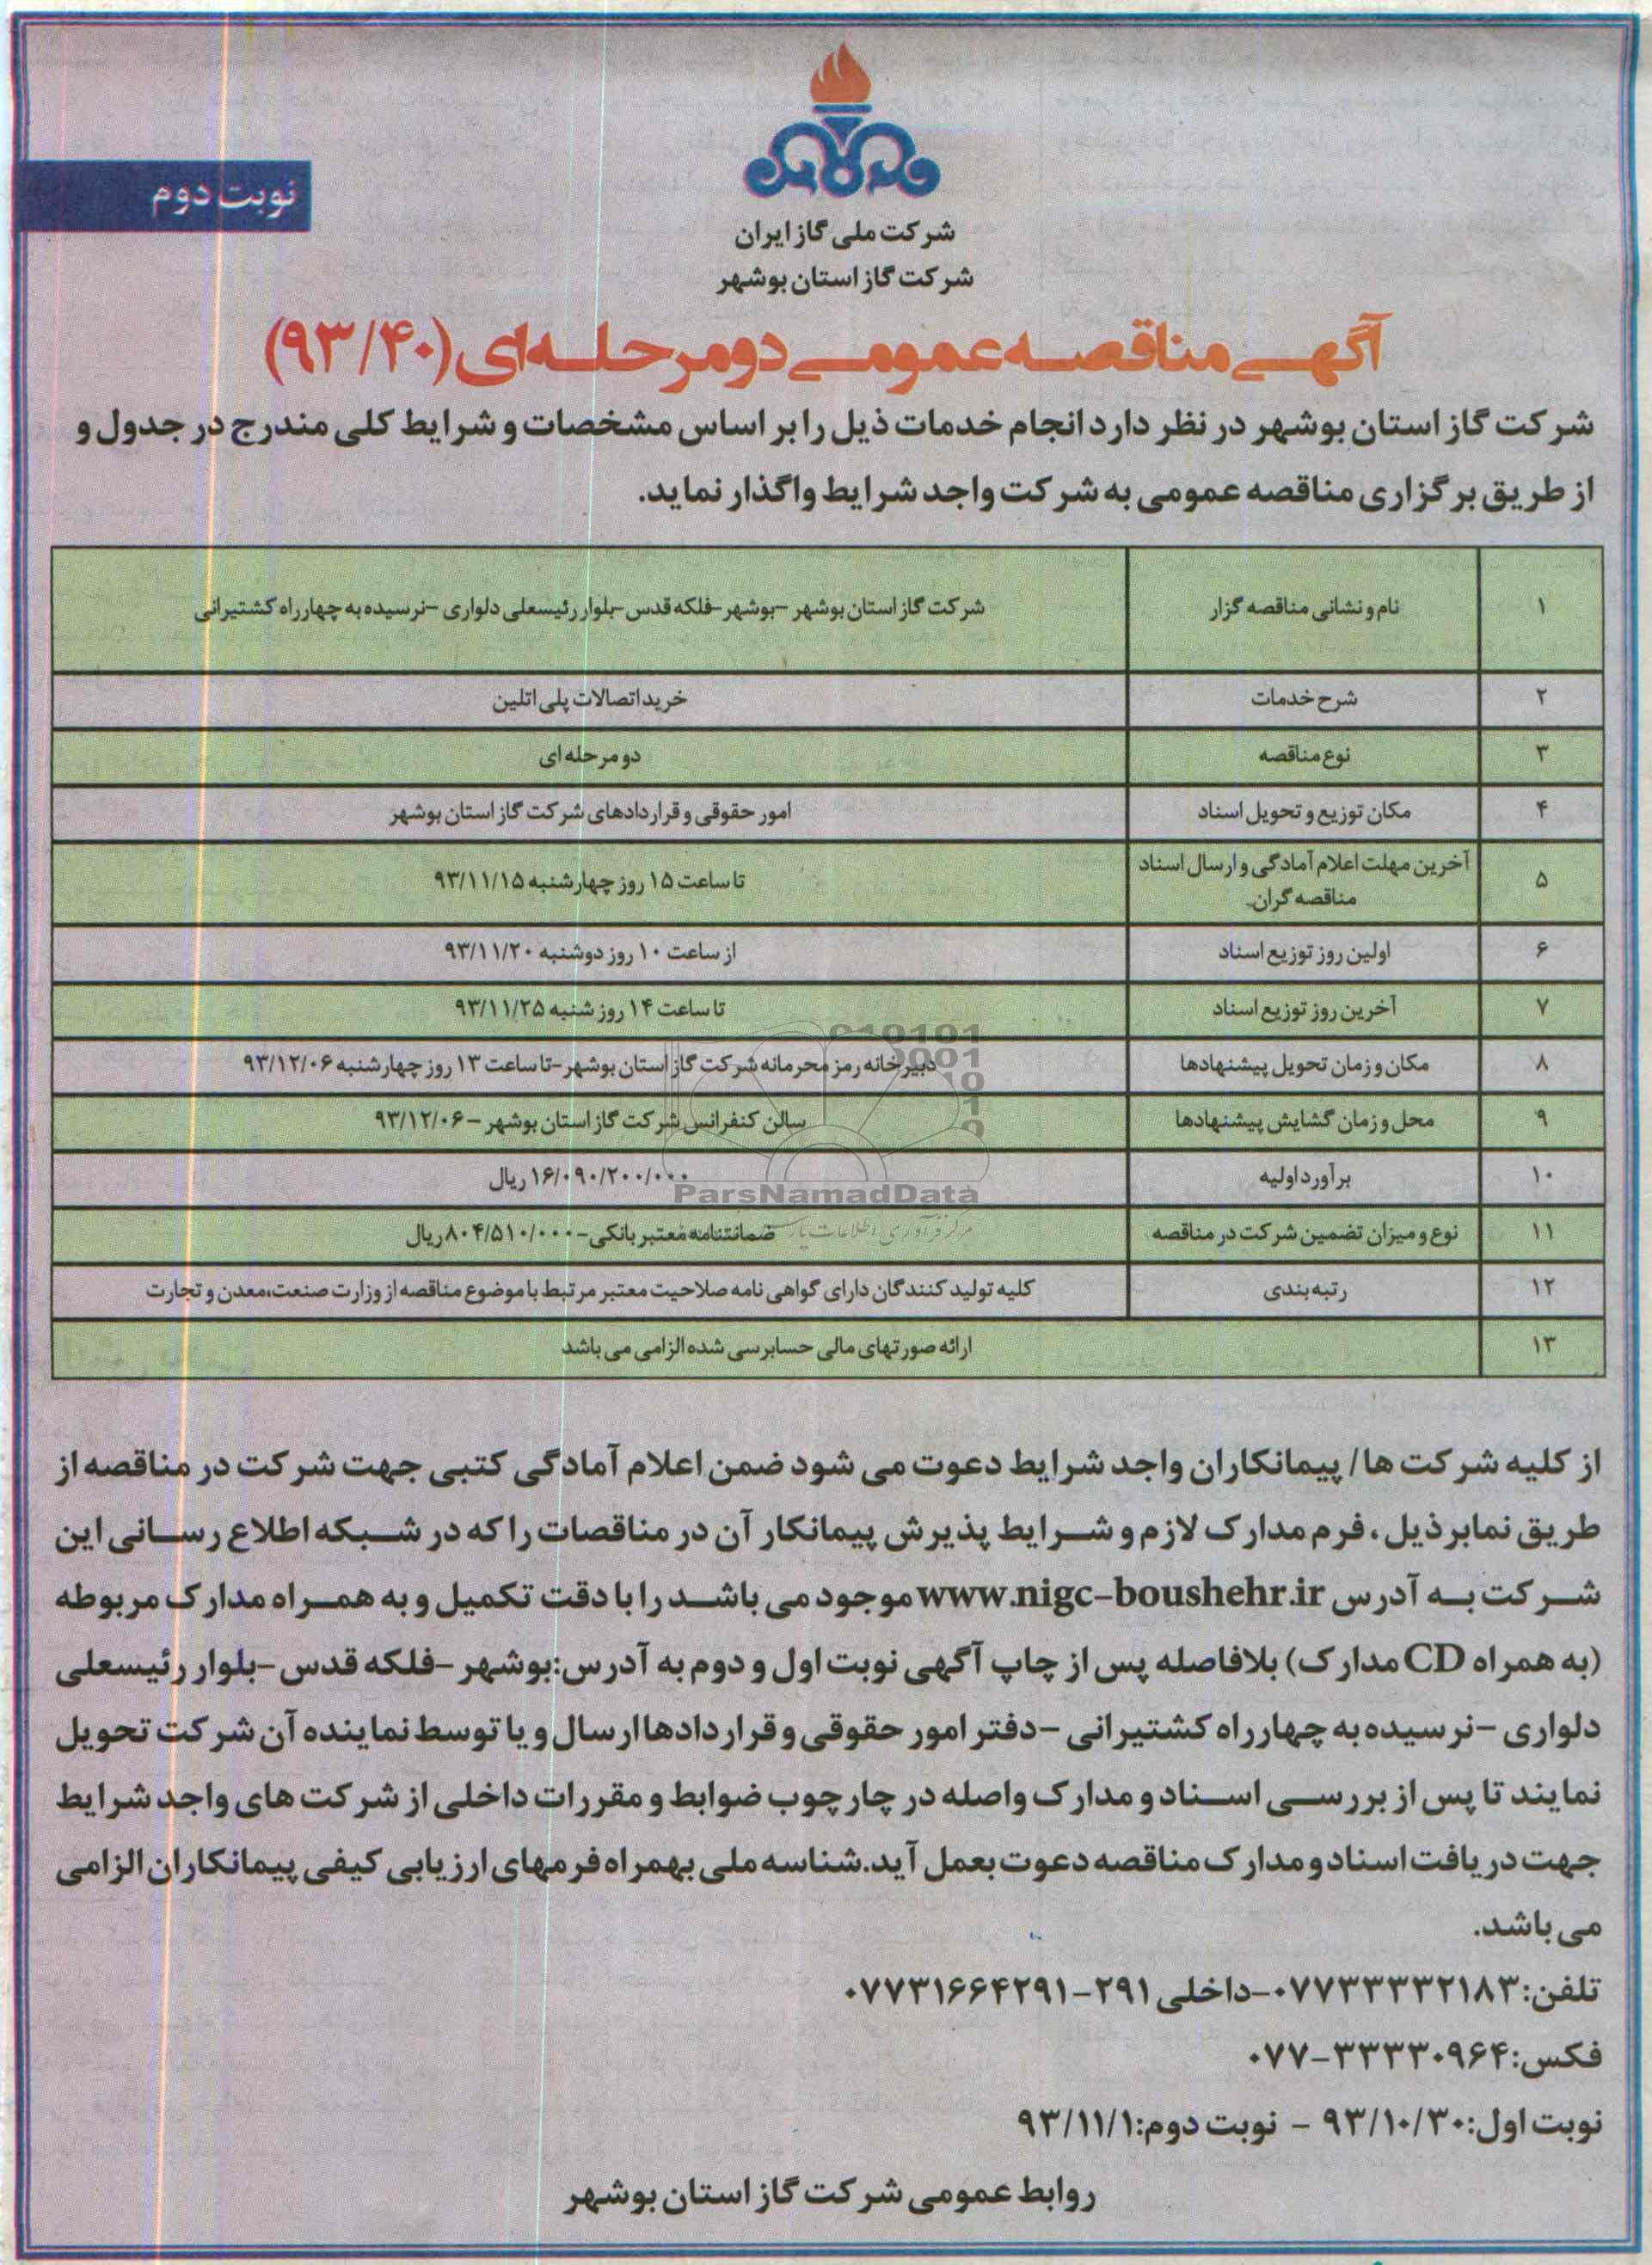 نوبت دوم
شرکت ملی گاز ایران
شرکت گاز استان بوشهر
آگهی مناقصه عمومی دو مرحله‌ای (۹۳/۴۰)
شرکت گاز استان بوشهر در نظر دارد انجام خدمات ذیل را بر اساس مشخصات و شرایط کلی مندرج در جدول و
از طریق برگزاری مناقصه عمومی به شرکت واجد شرایط واگذار نماید.
۱ نام و نشانی مناقصه گزار شرکت گاز استان بوشهر -بوشهر-فلکه قدس-بلوار رئیسعلی دلواری -نرسیده به چهارراه کشتیرانی
۲ شرح خدمات خرید اتصالات پلی اتلین
۳ نوع مناقصه دو مرحله ای
۴ مکان توزیع و تحویل اسناد امور حقوقی و قراردادهای شرکت گاز استان بوشهر
۵ آخرین مهلت اعلام آمادگی و ارسال اسناد
مناقصه گران تا ساعت ۱۵ روز چهارشنبه ۹۳/۱۱/۱۵
۶ اولین روز توزیع اسناد از ساعت ۱۰ روز دوشنبه ۹۳/۱۱/۲۰
۷ آخرین روز توزیع اسناد تا ساعت ۱۴ روز شنبه ۹۳/۱۱/۲۵
۸ مکان و زمان تحویل پیشنهادها دبیرخانه رمز محرمانه شرکت گاز استان بوشهر-تا ساعت ۱۳ روز چهارشنبه ۹۳/۱۲/۰۶
۹ محل و زمان گشایش پیشنهادها سالن کنفرانس شرکت گاز استان بوشهر - ۹۳/۱۲/۰۶
۱۰ برآورد اولیه ۱۶/۰۹۰/۲۰۰/۰۰۰ ریال
ParsNamadData
مرکز فرآوری اطلاعات پارس
۱۱ نوع و میزان تضمین شرکت در مناقصه ضمانتنامه معتبر بانکی-۸۰۴/۵۱۰/۰۰۰ ریال
۱۲ رتبه بندی کلیه تولید کنندگان دارای گواهی نامه صلاحیت معتبر مرتبط با موضوع مناقصه از وزارت صنعت،معدن و تجارت
۱۳ ارائه صورتهای مالی حسابرسی شده الزامی می باشد
از کلیه شرکت ها/ پیمانکاران واجد شرایط دعوت می شود ضمن اعلام آمادگی کتبی جهت شرکت در مناقصه از
طریق نمابر ذیل ، فرم مدارک لازم و شرایط پذیرش پیمانکار آن در مناقصات را که در شبکه اطلاع رسانی این
شرکت به آدرس www.nigc-boushehr.ir موجود می باشد را با دقت تکمیل و به همراه مدارک مربوطه
(به همراه CD مدارک) بلافاصله پس از چاپ آگهی نوبت اول و دوم به آدرس:بوشهر -فلکه قدس -بلوار رئیسعلی
دلواری -نرسیده به چهارراه کشتیرانی -دفتر امور حقوقی و قراردادها ارسال و یا توسط نماینده آن شرکت تحویل
نمایند تا پس از بررسی اسناد و مدارک واصله در چارچوب ضوابط و مقررات داخلی از شرکت های واجد شرایط
جهت دریافت اسناد و مدارک مناقصه دعوت بعمل آید.شناسه ملی بهمراه فرمهای ارزیابی کیفی پیمانکاران الزامی
می باشد.
تلفن:۰۷۷۳۳۳۳۲۱۸۳-داخلی ۲۹۱-۰۷۷۳۱۶۶۴۲۹۱
فکس:۳۳۳۳۰۹۶۴-۰۷۷
نوبت اول:۹۳/۱۰/۳۰ - نوبت دوم:۹۳/۱۱/۱
روابط عمومی شرکت گاز استان بوشهر